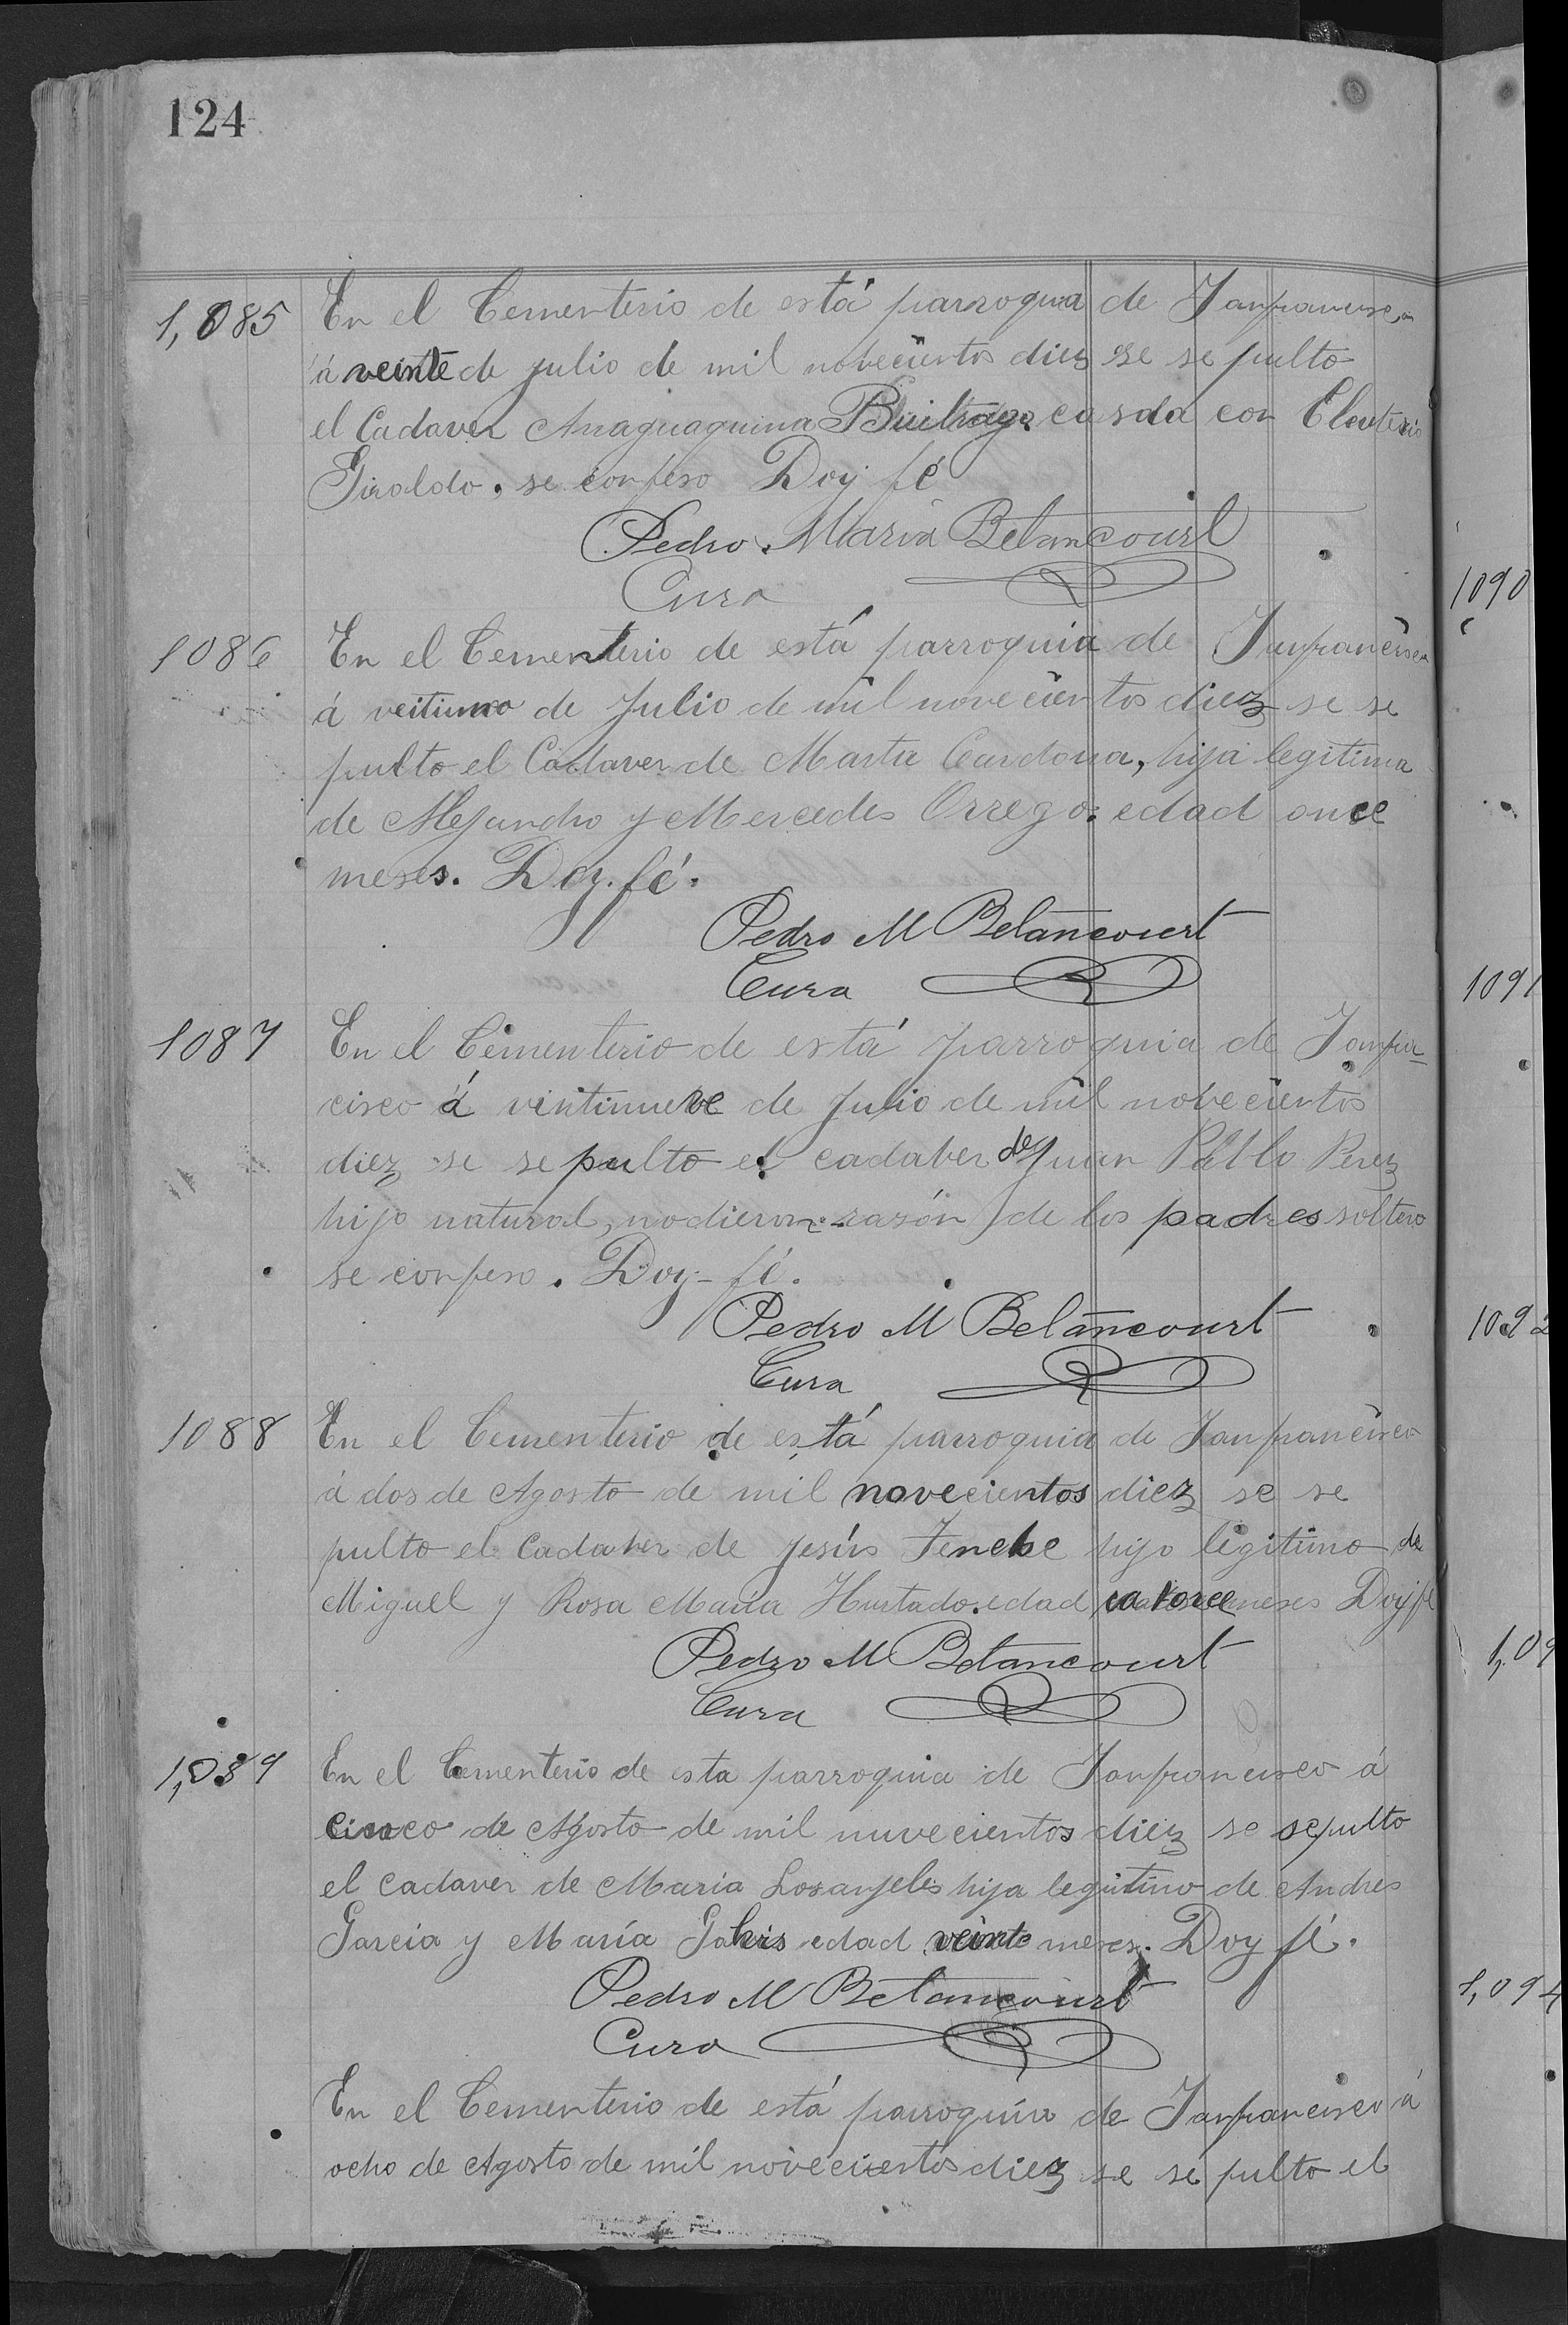 124
1,085 En el Cementerio de está parroquia de Sanfrancisco
á veinte de julio de mil nobecientos diez se se pulto
el Cadaver Anaguaquina Buitrago casda con Eleuterio
Giraldo, se confeso Doy fé
Pedro Maria Betancourt
Cura
1086 En el Cementerio de está parroquia de Sanfrancisco
á veitiuno de Julio de mil nove cientos diez se se
pulto el Cadaver de Marta Cardona, hija legitima
de Alejandro y Mercedes Orrego: edad once
meses. Doy fé.
Pedro M Betancourt
Cura
1087 En el Cementerio de está parroquia de Sanfra-
cisco á vintinueve de Julio de mil nobecientos
diez se se pulto el cadaber de Juan Pablo Perez
hijo natural, no dieron razón de los padres soltero
se confeso. Doy fé.
Pedro M Betancourt
Cura
1088 En el Cementerio de está parroquia de Sanfrancisco
á dos de Agosto de mil novecientos diez se se
pulto el Cadaber de Jesús hijo legitimo de
Miguel y Rosa María Hurtado. edad catorce meses Doy fé
Pedro M Betancourt
Cura
1,089 En el Cementerio de esta parroquia de Sanfrancisco á
cinco de Agosto de mil nuvecientos diez se sepulto
el cadaver de Maria Losanjeles hija legitimo de Andres
Garcia y María edad veinte meses. Doy fé.
Pedro M Betancourt
Cura
En el Cementerio de está parroquia de Sanfrancisco á
ocho de Agosto de mil novecientos diez se se pulto el
1090
1091
1092
1,09
1,094